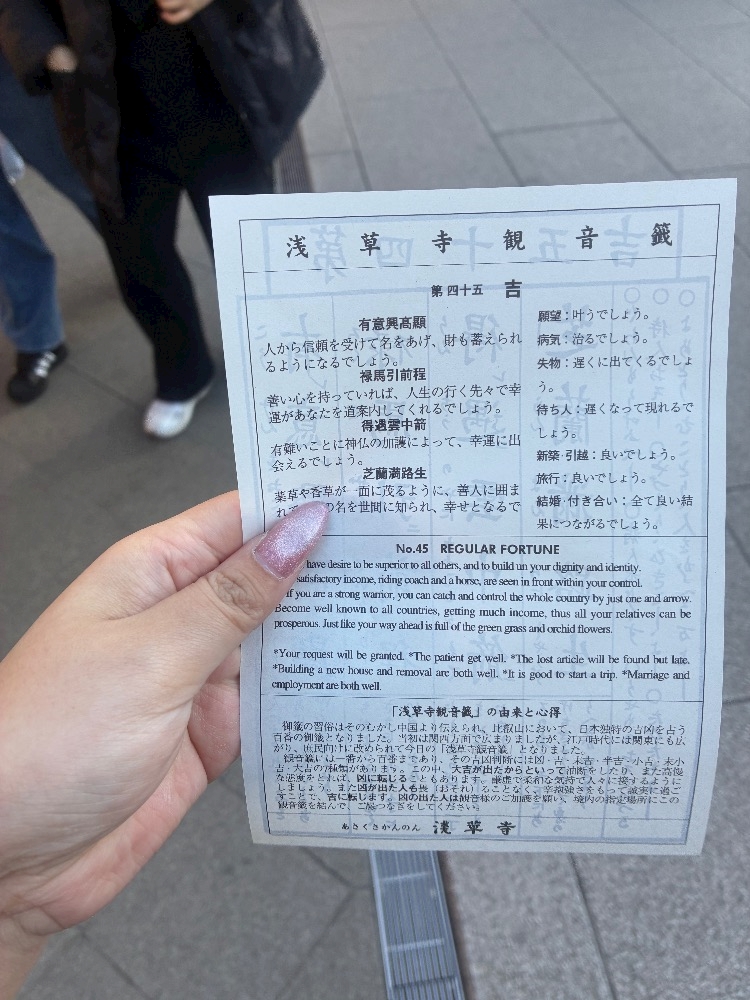 浅草寺観音籤
第四十五 吉
有意興高顯
人から信頼を受けて名をあげ、財も蓄えられ
るようになるでしょう。
禄馬引前程
善い心を持っていれば、人生の行く先々で幸
運があなたを道案内してくれるでしょう。
得遇雲中箭
有難いことに神仏の加護によって、幸運に出
会えるでしょう。
芝蘭満路生
薬草や香草が一面に茂るように、善人に囲ま
れ の名を世間に知られ、幸せとなるで
願望：叶うでしょう。
病気：治るでしょう。
失物：遅くに出てくるでしょ
う。
待ち人：遅くなって現れるで
しょう。
新築・引越：良いでしょう。
旅行：良いでしょう。
結婚・付き合い：全て良い結
果につながるでしょう。
No.45 REGULAR FORTUNE
have desire to be superior to all others, and to build un your dignity and identity.
satisfactory income, riding coach and a horse, are seen in front within your control.
If you are a strong warrior, you can catch and control the whole country by just one and arrow.
Become well known to all countries, getting much income, thus all your relatives can be
prosperous. Just like your way ahead is full of the green grass and orchid flowers.
*Your request will be granted. *The patient get well. *The lost article will be found but late.
*Building a new house and removal are both well. *It is good to start a trip. *Marriage and
employment are both well.
「浅草寺観音籤」の由来と心得
御籤の習俗はそのむかし中国より伝えられ、比叡山において、日本独特の吉凶を占う
百番の御籤となりました。当初は関西方面で広まりましたが、江戸時代には関東にも広
がり、庶民向けに改められて今日の「浅草寺観音籤」となりました。
観音籤には一番から百番まであり、その吉凶判断には凶・吉・末吉・半吉・小吉・末小
吉・大吉の7種類があります。この中、大吉が出たからといって油断をしたり、また高慢
な態度をとれば、凶に転じることもあります。謙虚で柔和な気持で人々に接するように
しましょう。また凶が出た人も畏（おそ）れることなく、辛抱強さをもって誠実に過ご
すことで、吉に転じます。凶の出た人は観音様のご加護を願い、境内の指定場所にこの
観音籤を結んで、ご縁つなぎをしてください。
あさくさかんのん 浅草寺